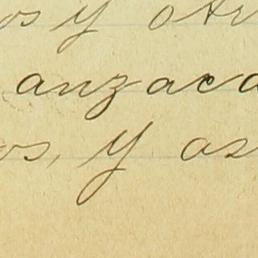 os y otr
anzaca
os, y as